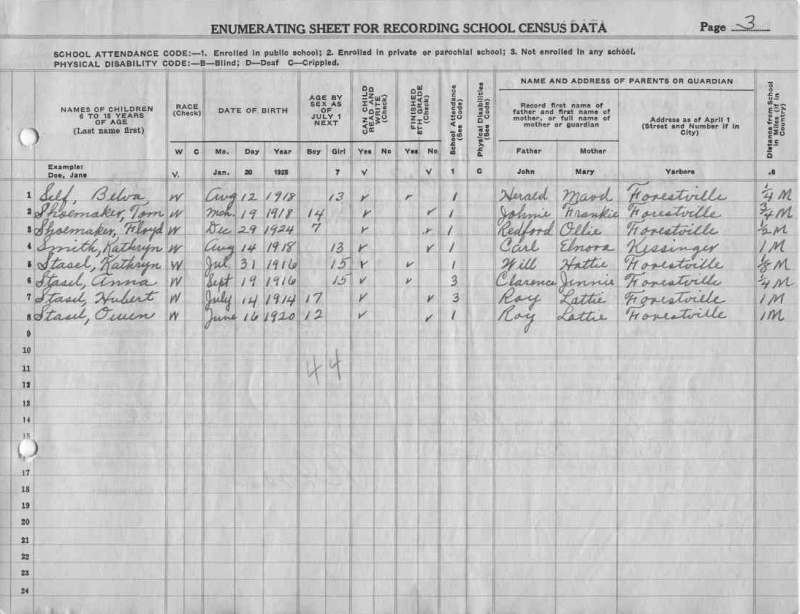 ENUMERATING SHEET FOR RECORDING SCHOOL CENSUS DATA Page 3
SCHOOL ATTENDANCE CODE:—1. Enrolled in public school; 2. Enrolled in private or parochial school; 3. Not enrolled in any school.
PHYSICAL DISABILITY CODE:—B—Blind; D—Deaf C—Crippled.
NAMES OF CHILDREN 6 TO 18 YEARS OF AGE (Last name first)
RACE (Check)
W C
DATE OF BIRTH
Mo. Day Year
AGE BY SEX AS OF JULY 1 NEXT
Boy Girl
CAN CHILD READ AND WRITE (Check)
Yes No
FINISHED 8TH GRADE (Check)
Yes No
School Attendance (See Code)
Physical Disabilities (See Code)
NAME AND ADDRESS OF PARENTS OR GUARDIAN
Record first name of father and first name of mother, or full name of mother or guardian
Father Mother
Address as of April 1 (Street and Number if in City)
Distance from School in Miles (if in Country)
Example: Doe, Jane V. Jan. 20 1928 7 V V 1 C John Mary Yerbers .8
1 Self, Belva W Aug 12 1918 13 v v 1 Herald Maud Forestville 1/4 M
2 Shoemaker, Tom W Mch. 19 1918 14 v v 1 Johnie Frankie Forestville 3/4 M
3 Shoemaker, Floyd W Dec 29 1924 7 v v 1 Redford Ollie Forestville 1/2 M
4 Smith, Kathryn W Aug 14 1918 13 v v 1 Carl Elnora Kessinger 1 M
5 Stasel, Kathryn W Jul. 31 1916 15 v v 1 Will Hattie Forestville 1/8 M
6 Stasel, Anna W Sept 19 1916 15 v v 3 Clarence Jennie Forestville 1/4 M
7 Stasel, Hubert W July 14 1914 17 v v 3 Roy Lattie Forestville 1 M
8 Stasel, Owen W June 16 1920 12 v v 1 Roy Lattie Forestville 1 M
9
10
11 44
12
13
14
15
17
18
19
20
21
22
23
24